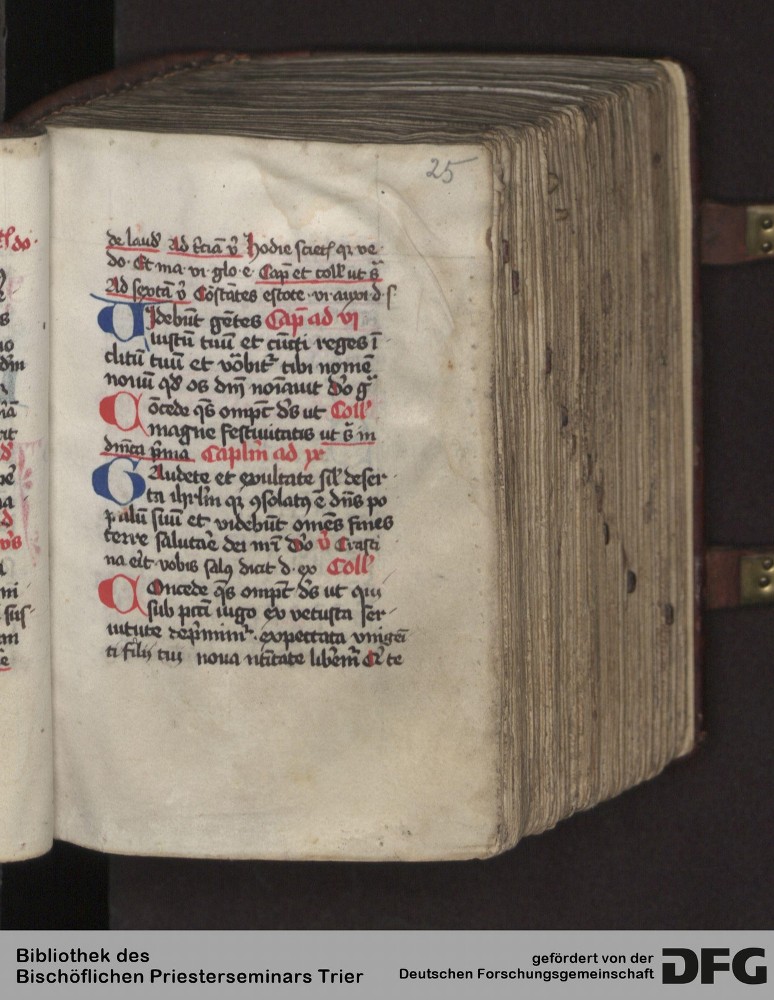 25
de laud' Ad t̄ciā v̄ hodie scietꝭ qꝛ ve
do· Et ma· vi· glo· e· Cap̄ et coll' ut s̄
Ad sextā v̄ Cōstātes estote · vi· auxi· d· s
Uidebūt gētes Cap̄ ad vi
iustū tuū et cūcti reges ī
clitū tuū et vōbit᷑ tibi nomē
nouū qd' os dm̄ noīauit
Cōcede qs̄ omp̄t d̄s ut Coll'
magne festiuitatis ut s̄ in
dm̄ca p̄ma Caplm̄ ad ix
Gaudete et exultate sil' deser
ta ihrl'm qꝛ ꝯsolatꝰ ē dn̄s po
pulū suū et videbūt om̄es fines
terre salutāe dei nr̄i v̄ Crasti
na er̄t vobis salꝰ dicit d· ex Coll'
Concede qs̄ omp̄t d̄s ut qui
sub pcc̄ti iugo ex vetusta ser
uitute dep̄mimur· expectata vnigeī
ti filij tui noua natītate liberem̄
Bibliothek des
Bischöflichen Priesterseminars Trier
gefördert von der
Deutschen Forschungsgemeinschaft
DFG